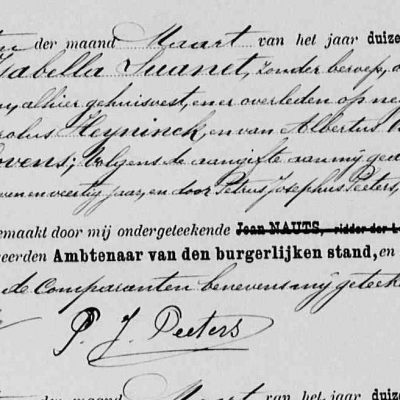 der maand Maart van het jaar duize
Isabella Suanet, zonder beroep, o
alhier gehuisvest, en er overleden op ne
Heyninck, en van Albertus
Volgens de aangifte aan mij ged
en veertig jaar, en door Petrus Josephus Peeters,
emaakt door mij ondergeteekende Jean NAUTS, ridder der L
eerden Ambtenaar van den burgerlijken stand, en
de Comparanten benevens mij geteeke
P. J. Peeters
der maand Maart van het jaar duize